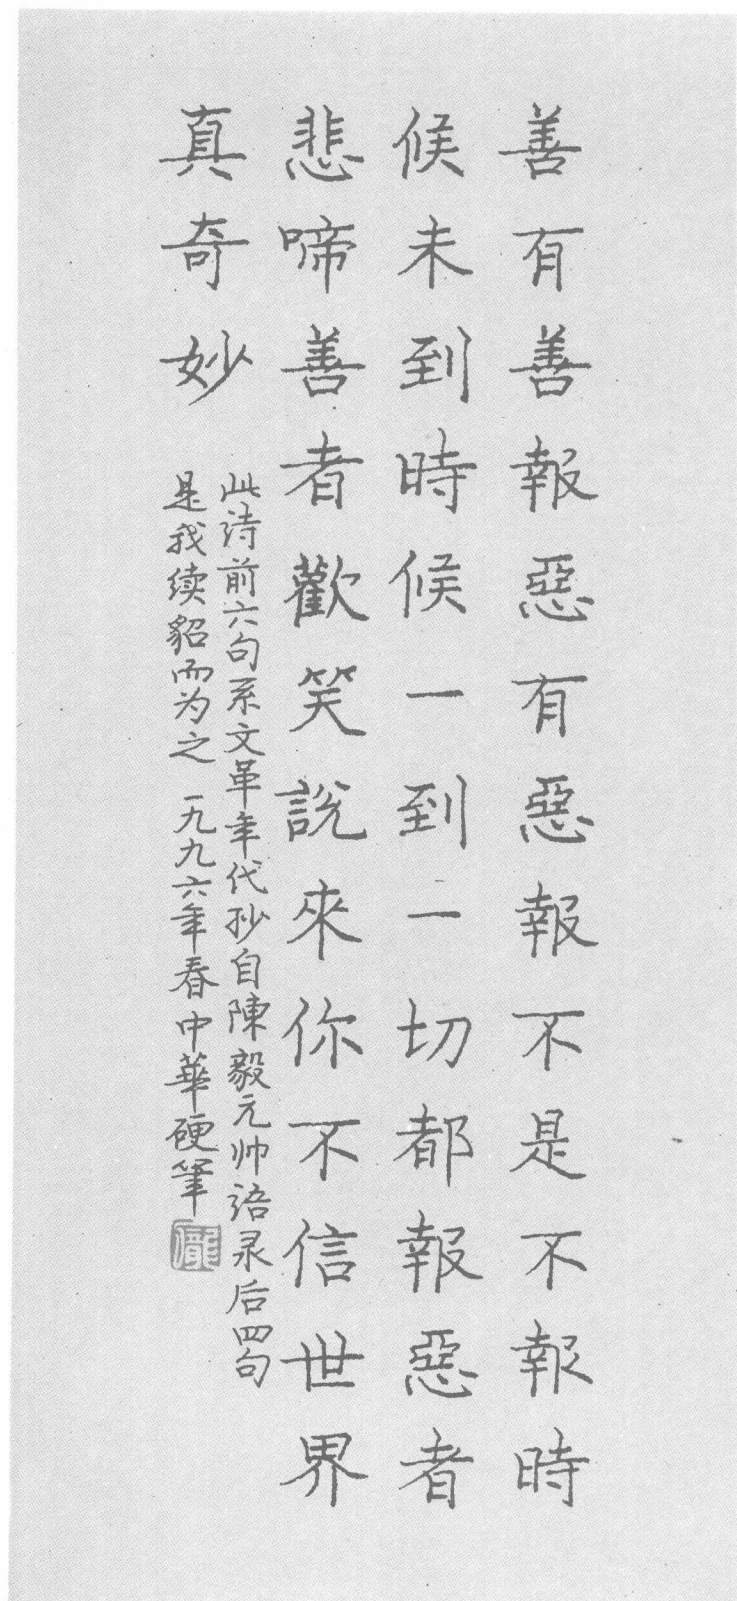 善有善報惡有惡報不是不報時
候未到時候一到一切都報惡者
悲啼善者歡笑說來你不信世界
真奇妙
此诗前六句系文革年代抄自陳毅元帅语录后四句
是我续貂而为之 一九九六年春中華硬筆